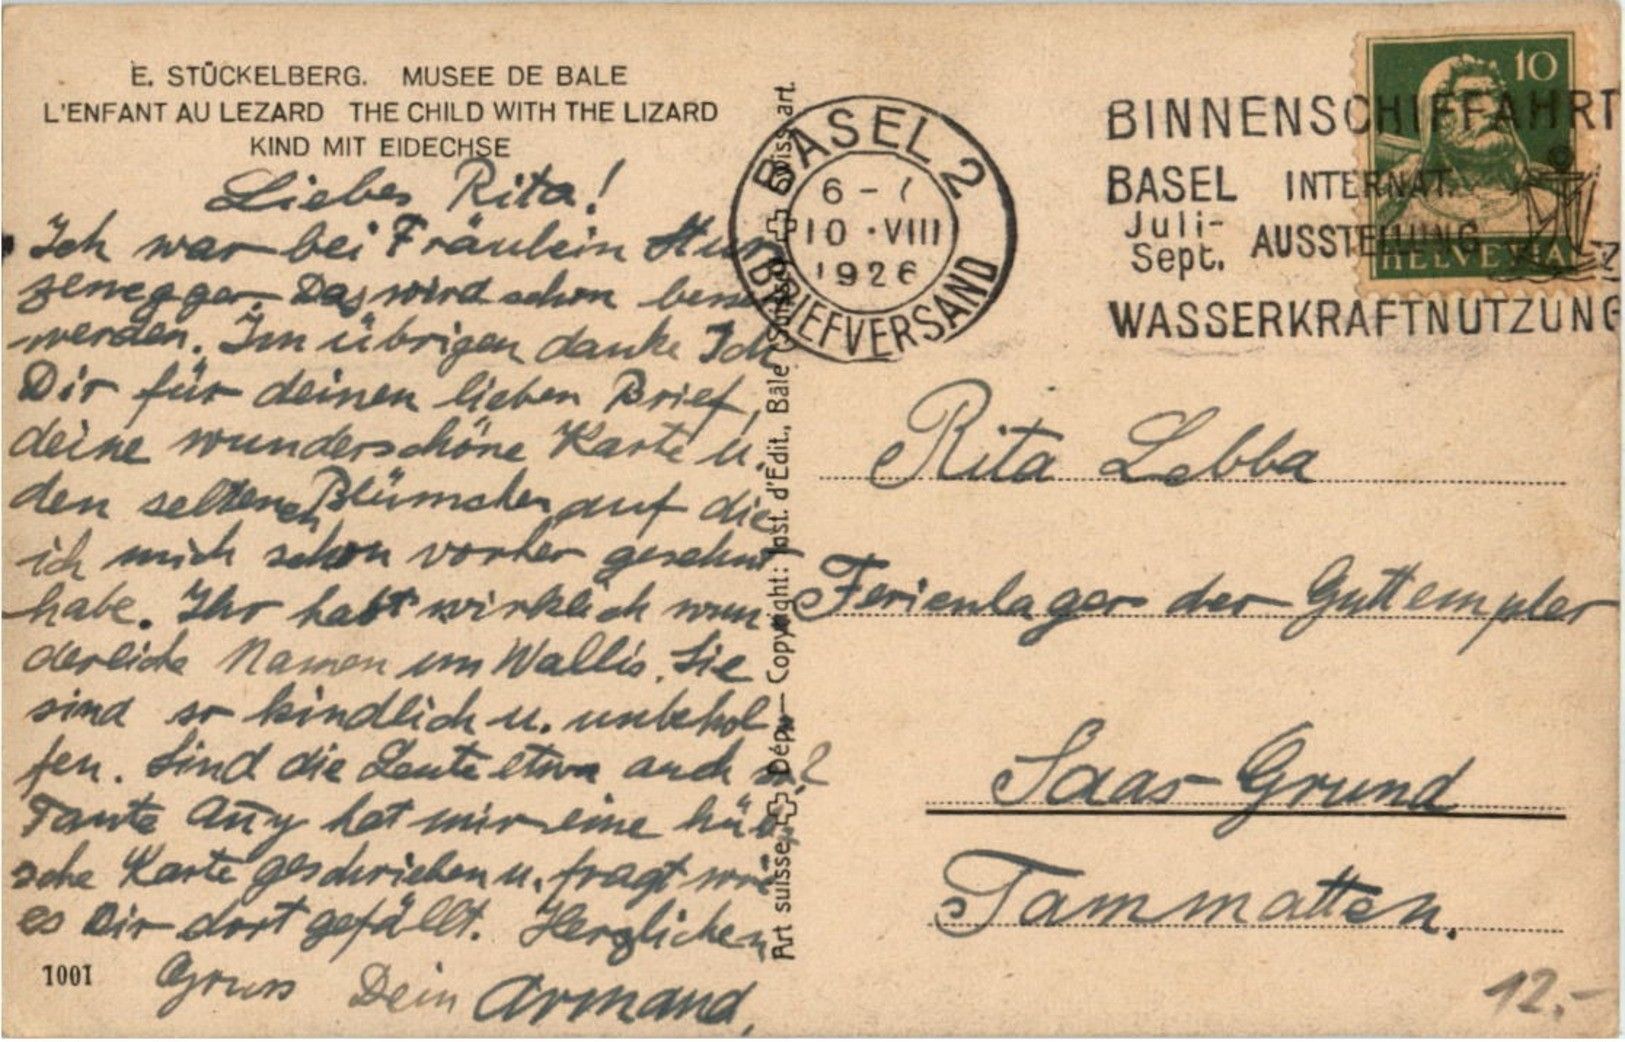 E. STÜCKELBERG. MUSEE DE BALE
L'ENFANT AU LEZARD THE CHILD WITH THE LIZARD
KIND MIT EIDECHSE
Liebes Rita!
Ich war bei Fräulein Hur
zenegger. Das wird schon besser
werden. Im übrigen danke Ich
Dir für deinen lieben Brief,
deine wunderschöne Karte u.
den seltenen Blümchen auf die
ich mich schon vorher gesehnt
habe. Ihr habt wirklich wun
derliche Namen im Wallis. Sie
sind so kindlich u. unbehol
fen. Sind die Leute etwa auch so?
Tante Anny hat mir eine hüb
sche Karte geschrieben u. fragt wie
es Dir dort gefällt. Herzlichen
Gruss Dein Armand.
1001
Art suisse Dépo Copyright: Inst. d'Edit., Bâle (Suisse) Swiss art.
BASEL 2
6 -
10 · VIII
1926
BRIEFVERSAND
BINNENSCHIFFAHRT
BASEL INTERNAT.
Juli-
Sept. AUSSTELLUNG
WASSERKRAFTNUTZUNG
10
HELVETIA
Rita Lebba
Ferienlager der Guttempler
Saas-Grund
Tammatten.
12.-